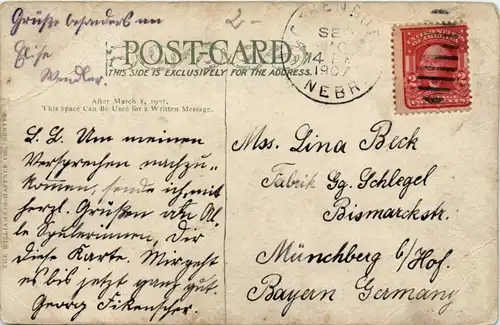 Grüße besonders an
Elise
Wendler.
2-
POST CARD
THIS SIDE IS EXCLUSIVELY FOR THE ADDRESS.
After March 1, 1907,
This Space Can Be Used for a Written Message.
THE WILLIAMSON-HAFFNER CO., DENVER.
SE
1907
NEBR.
2 2
L. L. Um meinen
Versprechen nachzu-
kommen, sende ich mit
herzl. Grüßen an Al-
le Spulerinnen, Dir
diese Karte. Mir geht
es bis jetzt ganz gut.
Georg Fikenscher.
Mss. Lina Beck
Fabrik Gg. Schlegel
Bismarckstr.
Münchberg b/Hof.
Bayern Germany